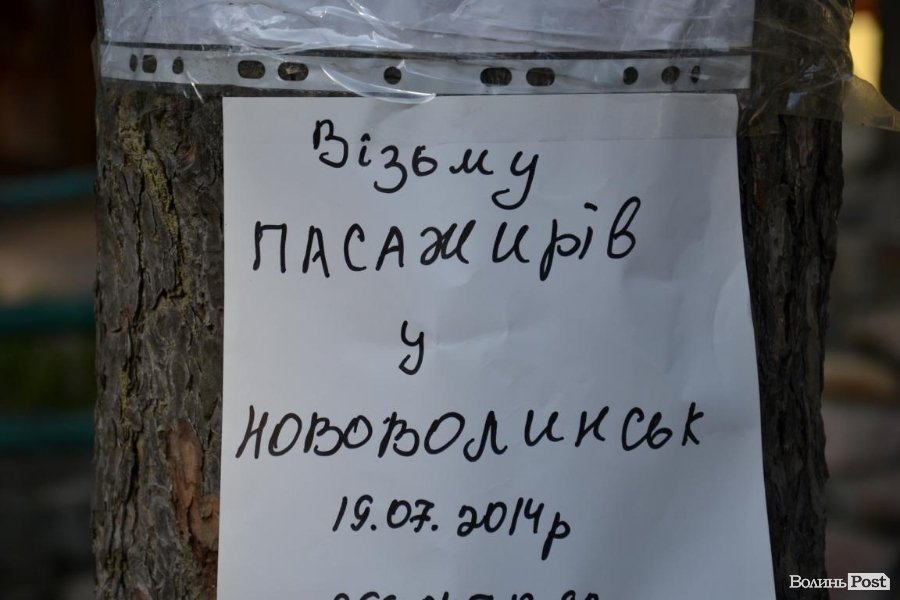 Візьму
ПАСАЖИРів
у
НОВОВОЛИНСЬК
19.07.2014р
ВолиньPost